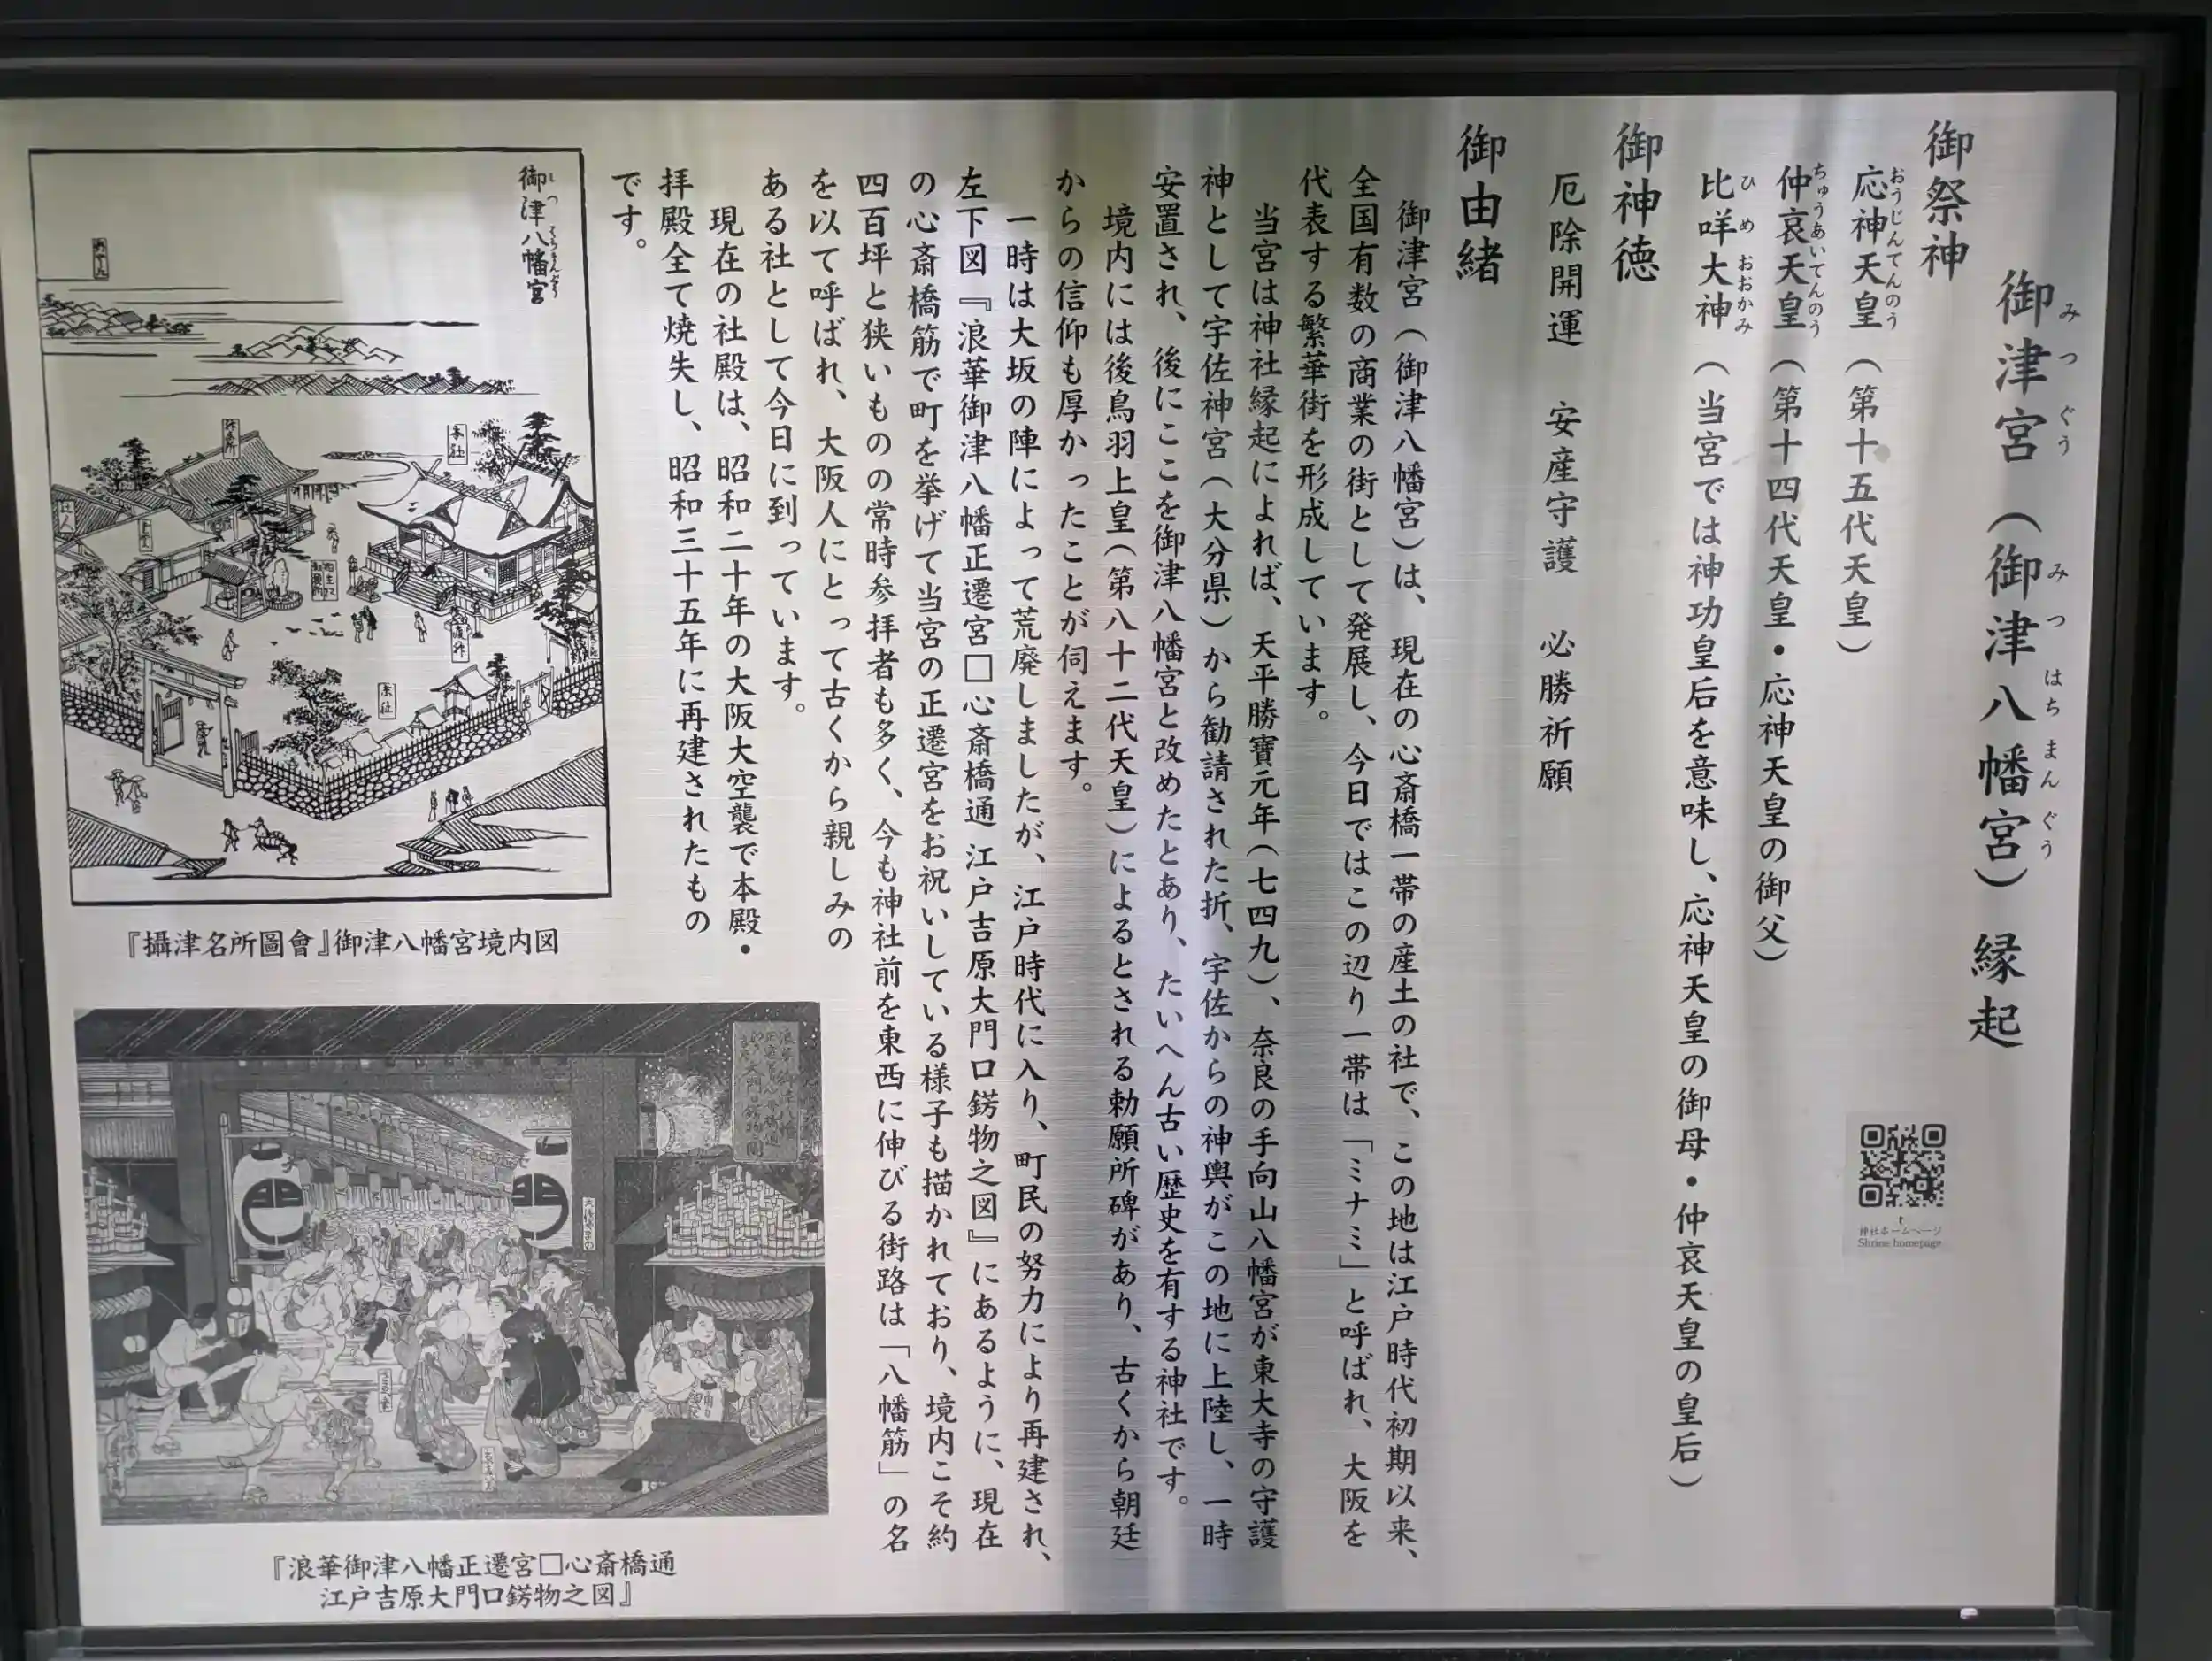 御津宮（御津八幡宮）縁起
みつぐう みつはちまんぐう
御祭神
応神天皇（第十五代天皇）
おうじんてんのう
仲哀天皇（第十四代天皇・応神天皇の御父）
ちゅうあいてんのう
比咩大神（当宮では神功皇后を意味し、応神天皇の御母・仲哀天皇の皇后）
ひめおおかみ
御神徳
厄除開運 安産守護 必勝祈願
御由緒
御津宮（御津八幡宮）は、現在の心斎橋一帯の産土の社で、この地は江戸時代初期以来、
全国有数の商業の街として発展し、今日ではこの辺り一帯は「ミナミ」と呼ばれ、大阪を
代表する繁華街を形成しています。
当宮は神社縁起によれば、天平勝寶元年（七四九）、奈良の手向山八幡宮が東大寺の守護
神として宇佐神宮（大分県）から勧請された折、宇佐からの神輿がこの地に上陸し、一時
安置され、後にここを御津八幡宮と改めたとあり、たいへん古い歴史を有する神社です。
境内には後鳥羽上皇（第八十二代天皇）によるとされる勅願所碑があり、古くから朝廷
からの信仰も厚かったことが伺えます。
一時は大坂の陣によって荒廃しましたが、江戸時代に入り、町民の努力により再建され、
左下図『浪華御津八幡正遷宮□心斎橋通 江戸吉原大門口錺物之図』にあるように、現在
の心斎橋筋で町を挙げて当宮の正遷宮をお祝いしている様子も描かれており、境内こそ約
四百坪と狭いものの常時参拝者も多く、今も神社前を東西に伸びる街路は「八幡筋」の名
を以て呼ばれ、大阪人にとって古くから親しみの
ある社として今日に到っています。
現在の社殿は、昭和二十年の大阪大空襲で本殿・
拝殿全て焼失し、昭和三十五年に再建されたもの
です。
神社ホームページ
Shrine homepage
御津八幡宮
本社
末社
『攝津名所圖會』御津八幡宮境内図
『浪華御津八幡正遷宮□心斎橋通
江戸吉原大門口錺物之図』